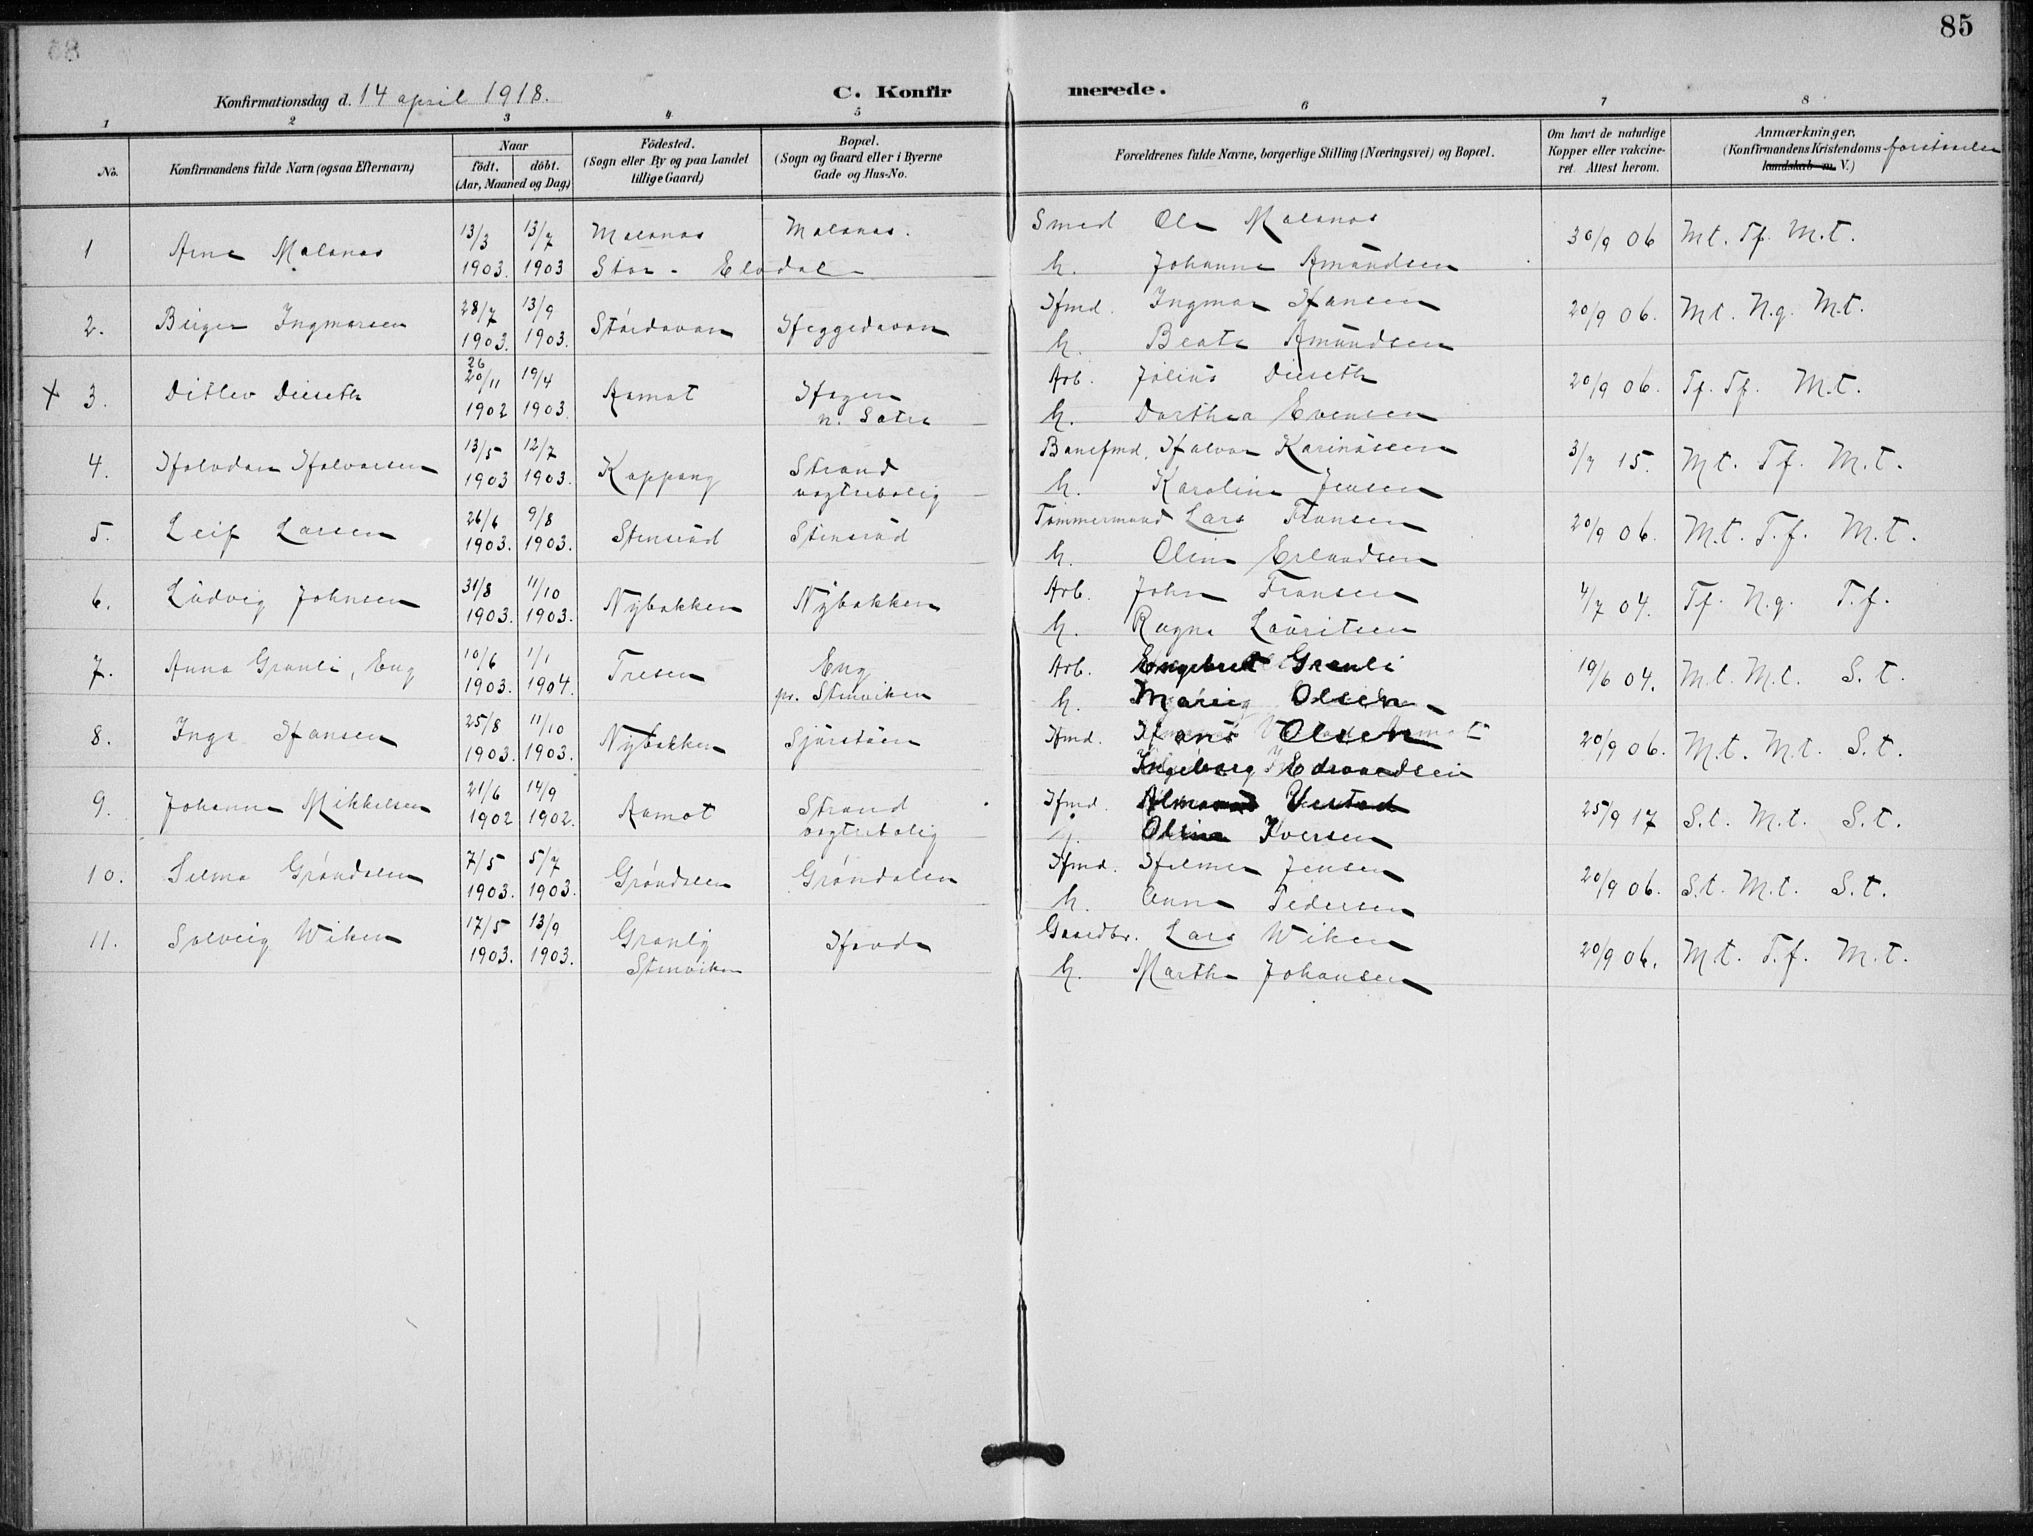 85
Konfirmationsdag d. 14 april 1918.
C. Konfirmerede.
1 2 3 4 5 6 7 8
No.
Konfirmandens fulde Navn (ogsaa Efternavn)
Naar
født, døbt.
(Aar, Maaned og Dag)
Födested.
(Sogn eller By og paa Landet
tillige Gaard)
Bopæl.
(Sogn og Gaard eller i Byerne
Gade og Hus-No.
Forældrenes fulde Navne, borgerlige Stilling (Næringsvei) og Bopæl.
Om havt de naturlige
Kopper eller vakcine-
ret. Attest herom.
Anmærkninger,
(Konfirmandens Kristendoms forstaaelse
kundskab m. V.)
1 Arne Malanas 13/3 1903. 13/7 1903 Malanas Malanas. Smed Ole Malanas 30/9 06 Mt. Tf. M.t.
Stor-Elvdal h. Johanne Amundsen
2. Birger Ingmarsen 28/7 1903. 13/9 1903. Stórdavan Heggedavan Hmd. Ingmar Hansen 20/9 06. Mt. N.g. M.t.
h. Beate Amundsen
+ 3. Ditlev Dieseth 26 20/11 1902 19/4 1903. Aamot Hagen Arb. Julius Dieseth 20/9 06. Tf. Tf. M.t.
n. Sætre h. Dorthea Evensen
4. Halvdan Halvorsen 13/5 1903 12/7 1903. Koppang Strand Banefmd. Halvor Karinussen 3/7 15. Mt. Tf. M.t.
vogterbolig h. Karoline Jensen
5. Leif Larsen 26/6 1903. 9/8 1903. Stensrud Stensrud Tømmermand Lars Fransen 20/9 06. M.t. T.f. M.t.
h. Oline Erlandsen
6. Ludvig Johnsen 31/8 1903. 11/10 1903. Nybakken Nybakken Arb. John Fransen 4/7 04. Tf. N.g. T.f.
h. Ragna Lauritsen
7. Anna Granli, Eng 10/6 1903. 1/1 1904. Tresen Eng Arb. Engebret Granli 19/6 04. M.t. M.t. S.t.
pr. Stenviken h. Mariey Olsen
8. Inga Hansen 25/8 1903. 11/10 1903. Nybakken Sjørstuen Hmd. Hans Olsen 20/9 06. M.t. M.t. S.t.
Ingeborg Edvardsen
9. Johanne Mikkelsen 21/6 1902 14/9 1902. Aamot Strand Hmd. Vestad 25/9 17 S.t. M.t. S.t.
vogterbolig Oline Iversen
10. Selma Gróndalen 7/5 1903. 5/7 1903. Gróndalen Gróndalen Hmd. Hilmer Jensen 20/9 06. S.t. M.t. S.t.
h. Anne Pedersen
11. Solveig Wiken 17/5 1903. 13/9 1903. Granly Hovde Gaardbr. Lars Wiken 20/9 06. M.t. T.f. M.t.
Stenviken h. Marthe Johansen